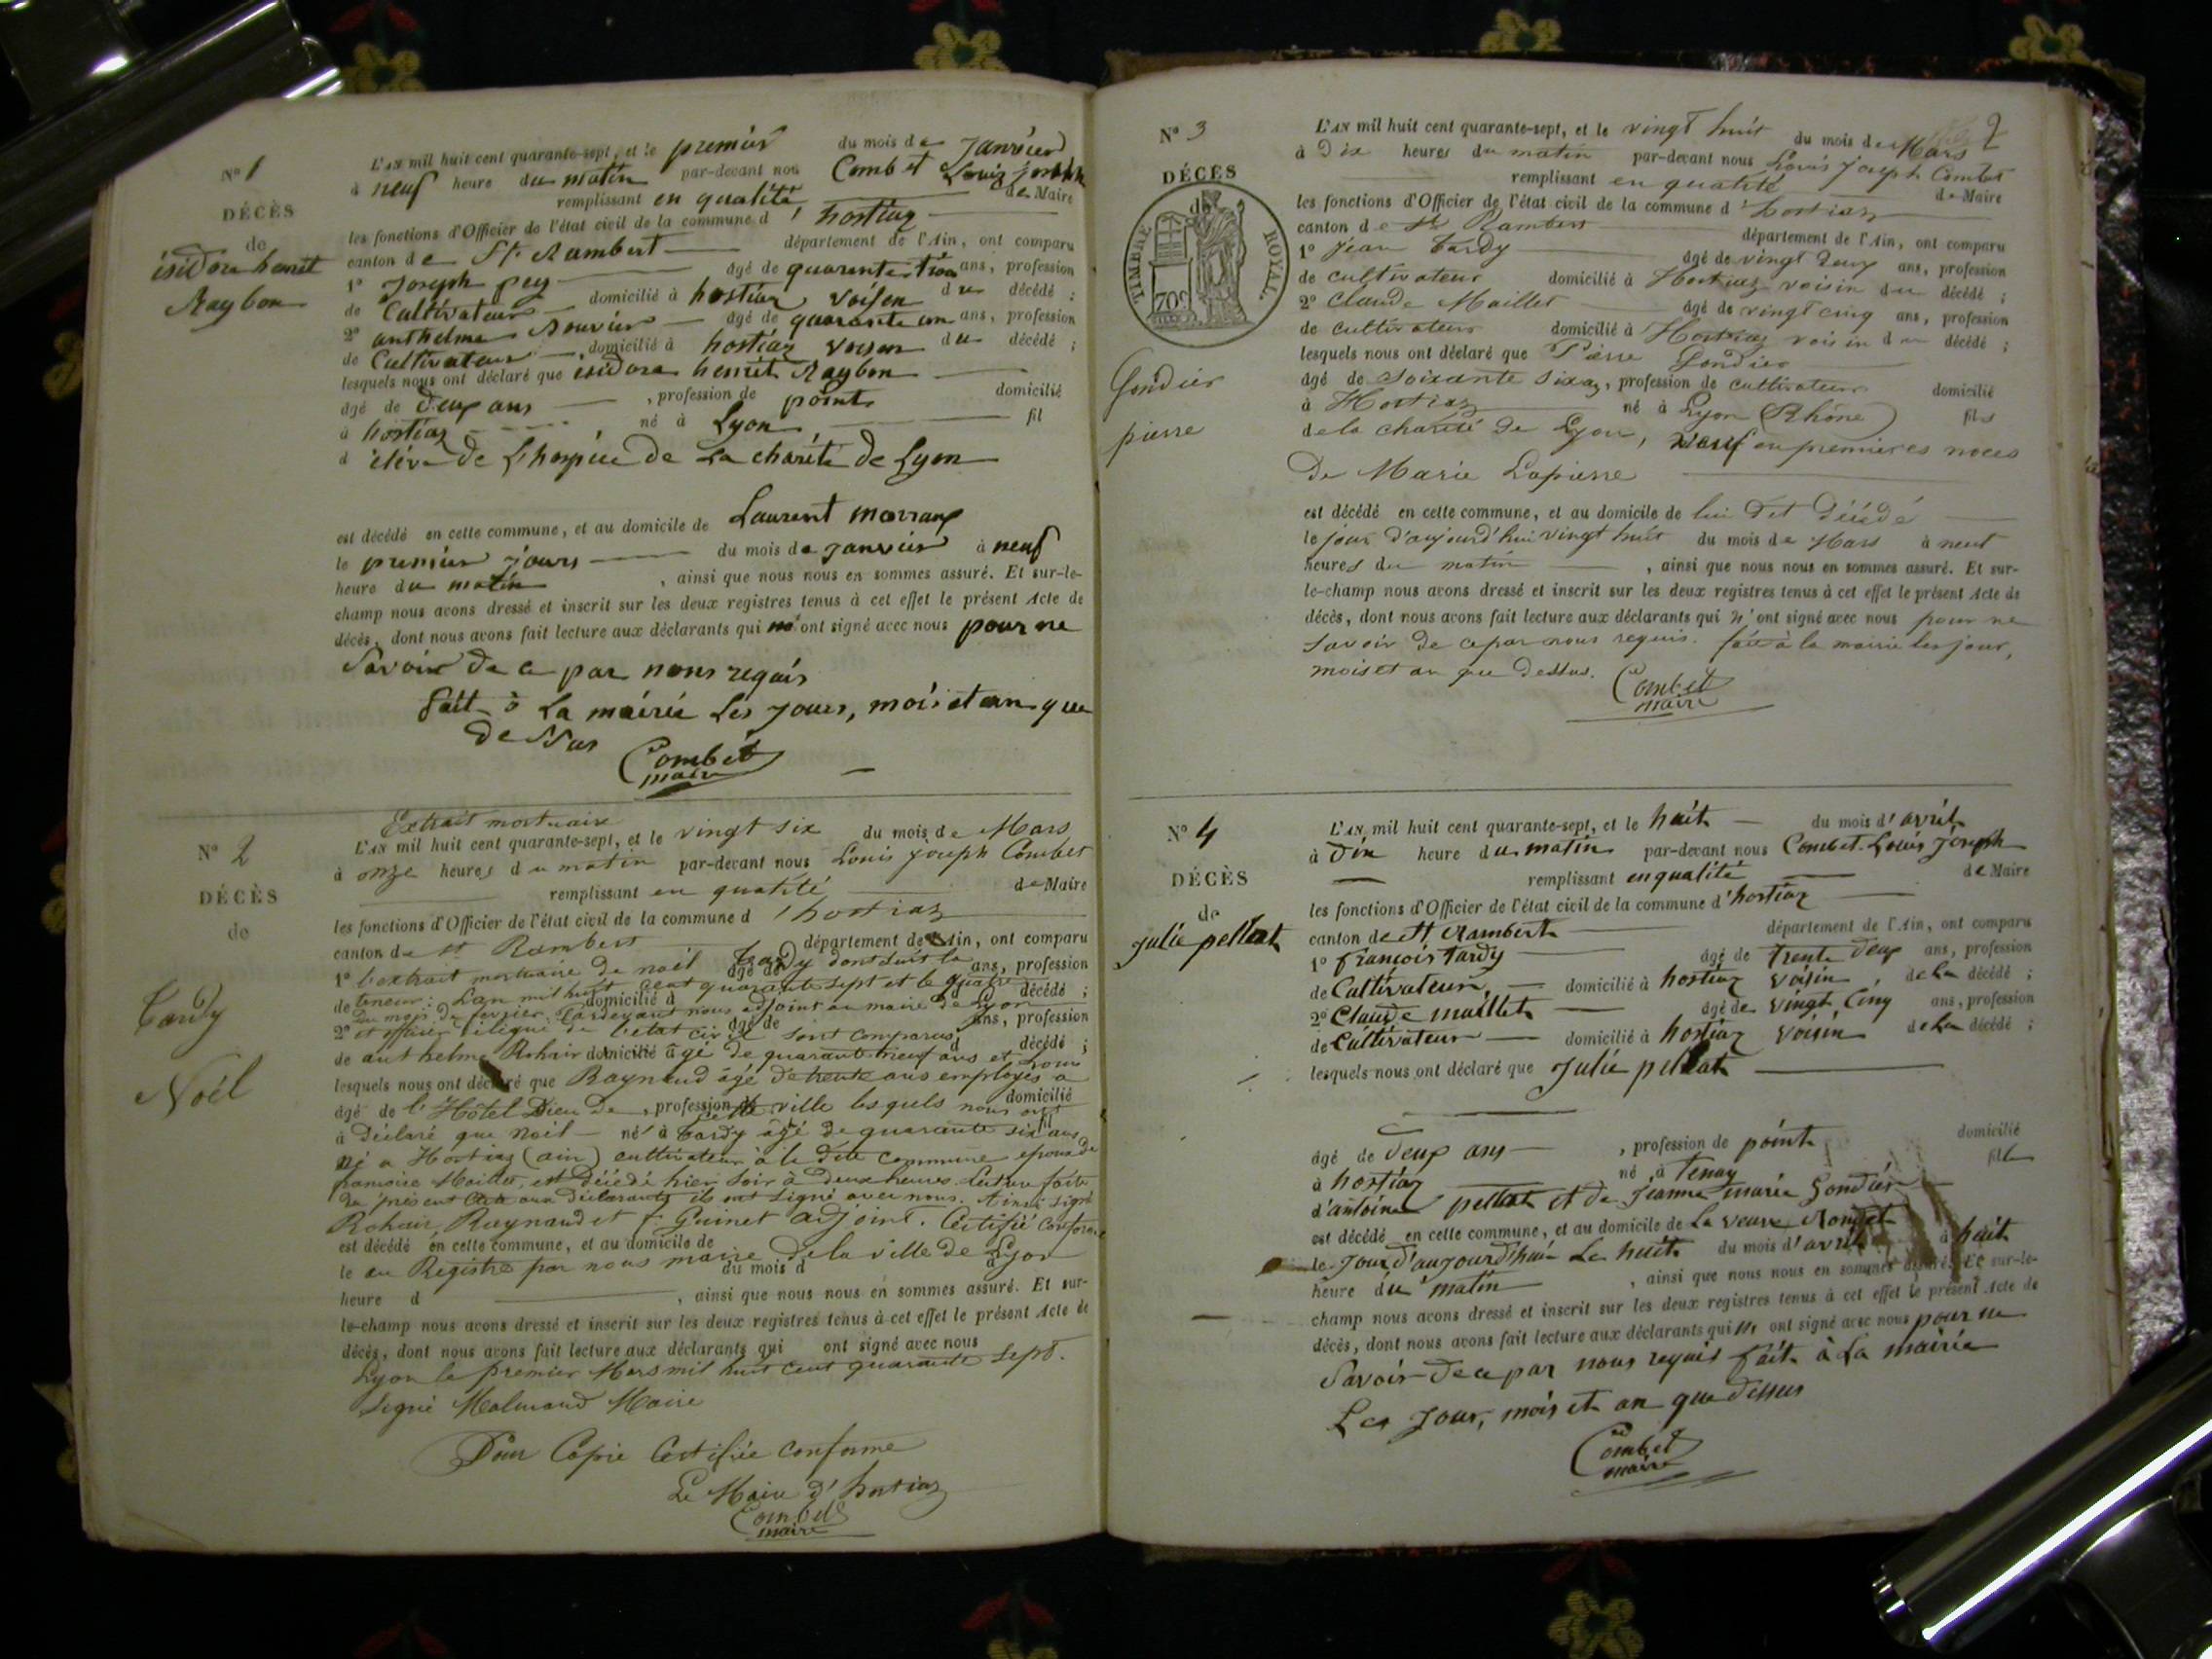 N° 1
DÉCÈS
de
isidore henrit
Raybon
L'AN mil huit cent quarante-sept, et le premier du mois de Janvier
à neuf heure du matin par-devant nou Combet Louis joseph
remplissant en qualité de Maire
les fonctions d'Officier de l'état civil de la commune d'hostiaz
canton de St. Rambert département de l'Ain, ont comparu
1° Joseph pey agé de quarente trois ans, profession
de Cultivateur domicilié à hostiaz voisen du décédé ;
2° anthelme Bouvier agé de quarante un ans, profession
de Cultivateur domicilié à hostiaz voisen du décédé ;
lesquels nous ont déclaré que isidore henrit Raybon
agé de deux ans , profession de point domicilié
à hostiaz né à Lyon fil
d élève de L'hospice de La charité de Lyon
est décédé en cette commune, et au domicile de Laurent
le premier jours du mois de Janvier à neuf
heure du matin , ainsi que nous nous en sommes assuré. Et sur-le-
champ nous avons dressé et inscrit sur les deux registres tenus à cet effet le présent Acte de
décès, dont nous avons fait lecture aux déclarants qui ont signé avec nous pour ne
Savoir de ce par nous requis
fait à La mairie Les jours, mois et an que
dessus
Combet
maire
N° 2
DÉCÈS
de
Tardy
Noël
Extrait mortuaire
L'AN mil huit cent quarante-sept, et le vingt six du mois de Mars
à onze heures du matin par-devant nous Louis joseph Combet
remplissant en qualité de Maire
les fonctions d'Officier de l'état civil de la commune d'hostiaz
canton de St Rambert département de l'Ain, ont comparu
1° l'extrait mortuaire de noël Tardy dont suit la agé de ans, profession
de teneur : L'an mil huit cent quarante sept et le quatre domicilié d décédé ;
du mois de fevrier, Pardevant nous adjoint au maire de Lyon
2° et officier délégué de l'état civil sont comparus agé de ans, profession
de anthelme Rohair domicilié âgé de quarante neuf ans et Louis d décédé ;
lesquels nous ont déclaré que Raynaud âgé de trente ans employés a
agé de l'Hôtel Dieu de , profession de cette ville lesquels nous ont domicilié
à déclaré que Noël né à Tardy âgé de quarante six ans fil
né a Hostiaz (ain) cultivateur à la dite commune epoux de
françoise Maillet, est décédé hier soir à deux heures. lecture faite
du présent acte aux déclarants ils ont signé avec nous. Ainsi signé
Rohair, Raynaud et f. Guinet adjoint. Certifié conforme
est décédé en cette commune, et au domicile de
le au Registre par nous maire de la ville de Lyon du mois d à
heure d , ainsi que nous nous en sommes assuré. Et sur-
le-champ nous avons dressé et inscrit sur les deux registres tenus à cet effet le présent Acte de
décès, dont nous avons fait lecture aux déclarants qui ont signé avec nous
Lyon le premier Mars mil huit cent quarante sept.
Signé Maire
Pour Copie Certifiée conforme
Le Maire d'hostiaz
Combet
maire
2
N° 3
DÉCÈS
de
TIMBRE ROYAL.
70c
Gondier
pierre
L'AN mil huit cent quarante-sept, et le vingt huit du mois de Mars
à Dix heures du matin par-devant nous Louis Joseph Combet
remplissant en qualité de Maire
les fonctions d'Officier de l'état civil de la commune d'hostiaz
canton de St Rambert département de l'Ain, ont comparu
1° Jean Tardy agé de vingt deux ans, profession
de cultivateur domicilié à Hostiaz voisin du décédé ;
2° Claude Maillet agé de vingt cinq ans, profession
de cultivateur domicilié à Hostiaz voisin du décédé ;
lesquels nous ont déclaré que Pierre Gondier
agé de soixante six ans, profession de cultivateur domicilié
à Hostiaz né à Lyon (Rhône) fils
de la charité de Lyon, veuf en premieres noces
De Marie Lapierre
est décédé en cette commune, et au domicile de lui dit décédé
le jour d'aujourd'hui vingt huit du mois de Mars à neuf
heures du matin , ainsi que nous nous en sommes assuré. Et sur-
le-champ nous avons dressé et inscrit sur les deux registres tenus à cet effet le présent Acte de
décès, dont nous avons fait lecture aux déclarants qui n'ont signé avec nous pour ne
savoir de ce par nous requis. fait à la mairie les jour,
mois et an que dessus.
Combet
maire
N° 4
DÉCÈS
de
julie pellat
L'AN mil huit cent quarante-sept, et le huit du mois d'avril
à dix heure du matin par-devant nous Combet Louis Joseph
remplissant en qualité de Maire
les fonctions d'Officier de l'état civil de la commune d'hostiaz
canton de St Rambert département de l'Ain, ont comparu
1° françois tardy agé de trente deux ans, profession
de Cultivateur domicilié à hostiaz voisin de la décédé ;
2° Claude maillet agé de vingt Cinq ans, profession
de Cultivateur domicilié à hostiaz voisin de la décédé ;
lesquels nous ont déclaré que Julie pellat
agé de deux ans , profession de point domicilié
à hostiaz né à tenay fille
d'antoine pellat et de jeanne marie Gondier
est décédé en cette commune, et au domicile de La veuve
le Jour d'aujourd'hui Le huit du mois d'avril à huit
heure du matin , ainsi que nous nous en sommes assuré. Et sur-le-
champ nous avons dressé et inscrit sur les deux registres tenus à cet effet le présent Acte de
décès, dont nous avons fait lecture aux déclarants qui n' ont signé avec nous pour ne
Savoir de ce par nous requis fait à La mairie
Les Jour, mois et an que dessus
Combet
maire